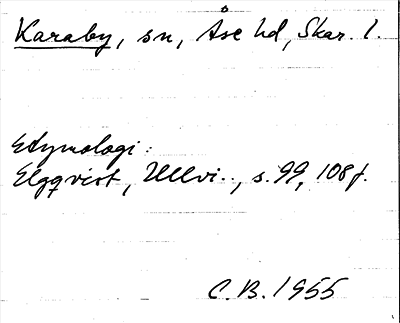 Karaby, sn, Åse hd, Skar. l.
Etymologi:
Elgqvist, Ullvi.., s. 99, 108 f.
C.B. 1955